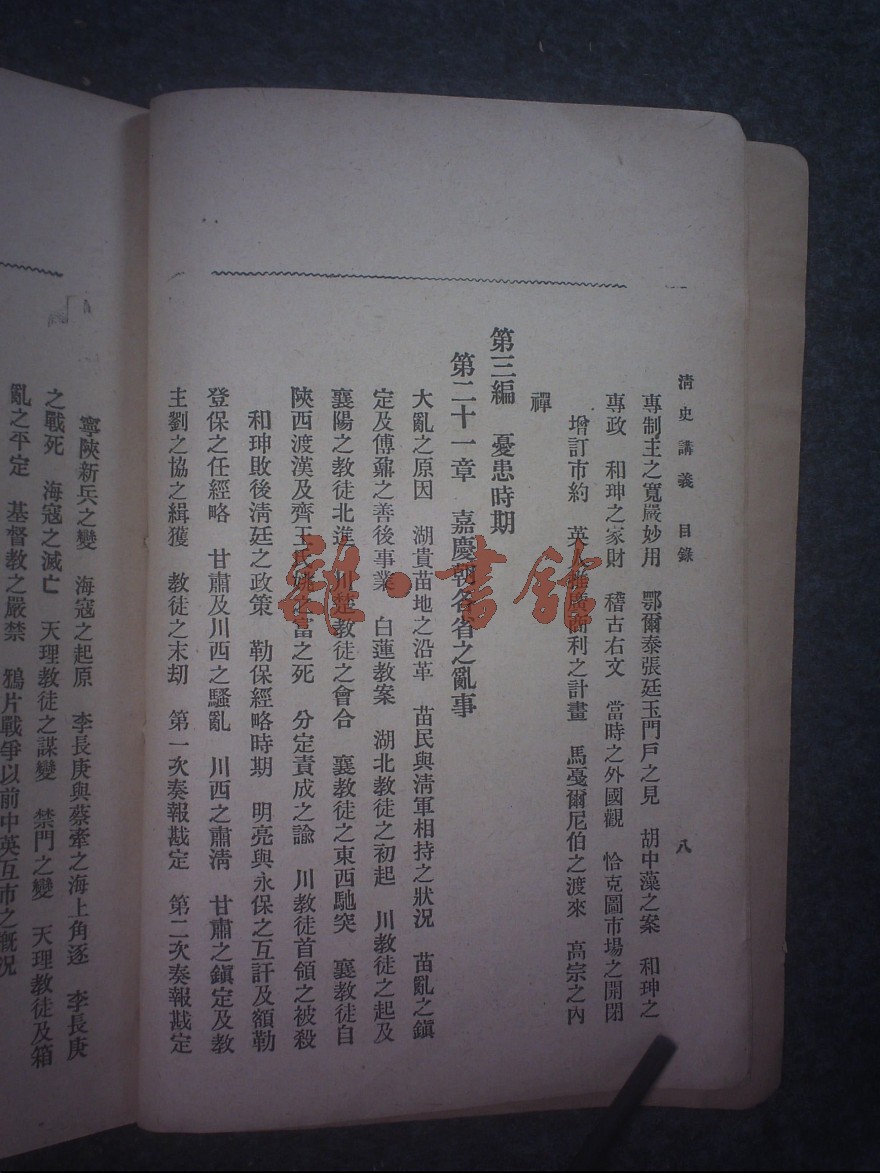 清史講義 目錄 八
專制主之寬嚴妙用 鄂爾泰張廷玉門戶之見 胡中藻之案 和珅之
專政 和珅之家財 稽古右文 當時之外國觀 恰克圖市場之開閉
增訂市約 英人推廣商利之計畫 馬戞爾尼伯之渡來 高宗之內
禪
第三編 憂患時期
第二十一章 嘉慶朝各省之亂事
大亂之原因 湖貴苗地之沿革 苗民與清軍相持之狀況 苗亂之鎭
定及傅鼐之善後事業 白蓮教案 湖北教徒之初起 川教徒之起及
襄陽之教徒北進 川楚教徒之會合 襄教徒之東西馳突 襄教徒自
陝西渡漢及齊王氏姚之富之死 分定責成之諭 川教徒首領之被殺
和珅敗後淸廷之政策 勒保經略時期 明亮與永保之互訐及額勒
登保之任經略 甘肅及川西之騷亂 川西之肅淸 甘肅之鎭定及教
主劉之協之緝獲 教徒之末劫 第一次奏報戡定 第二次奏報戡定
寧陝新兵之變 海寇之起原 李長庚與蔡牽之海上角逐 李長庚
之戰死 海寇之滅亡 天理教徒之謀變 禁門之變 天理教徒及箱
亂之平定 基督教之嚴禁 鴉片戰爭以前中英互市之槪況
雜·書館